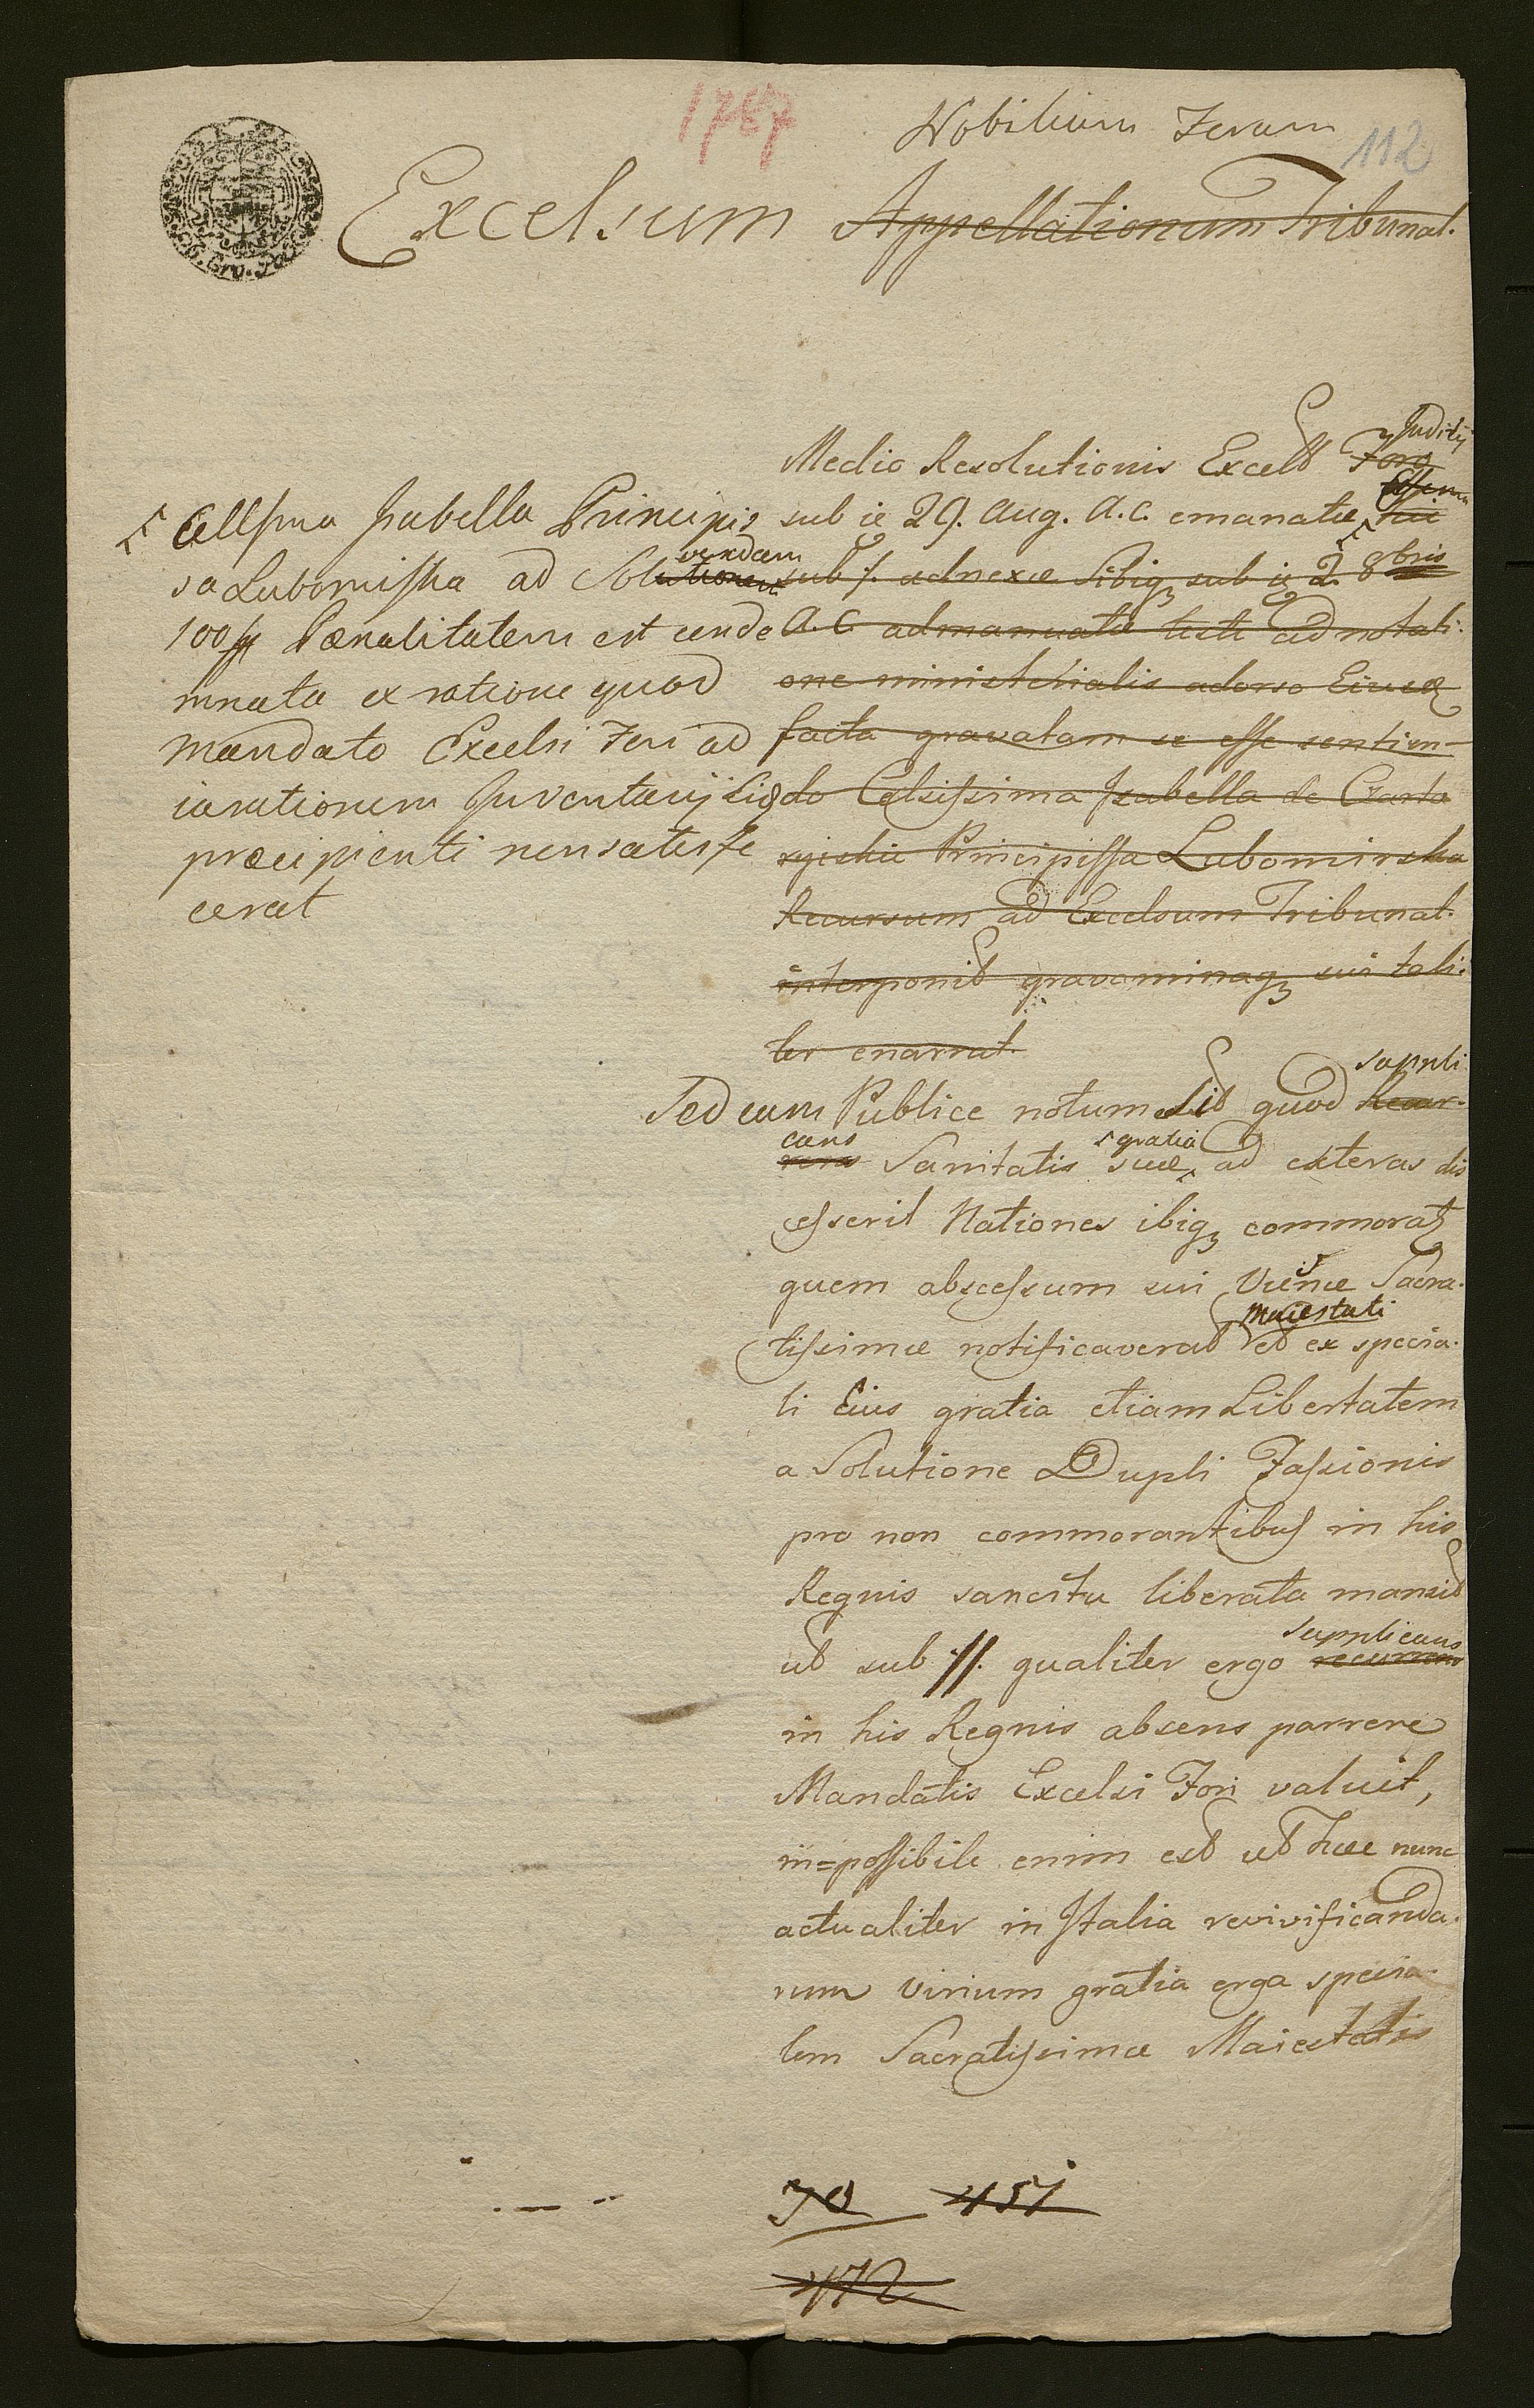 1787
Nobilium Forum
112
Excelsum Appellationum Tribunal.
Judicij
Medio Resolutionis Excels Foro
sub ie 29. Aug. A.C. emanatæ, hui
sub /. adnexæ Sibiq sub ie 2. 8bris
A.C. admanuatæ teste adnotati.
one ministerialis adorso Eiusd
facta gravatam se esse sentien-
do Celsissima Isabella de Czarto
ryiskie Principissa Lubomirska
Recursum ad Excelsum Tribunal.
interponit gravaminaq sua tali.
ter enarrat.
Cellsma Isabella Principis
sa Lubomiska ad Solutionem
vendam
100 # Pœnalitatem est conde
mnata ex ratione quod
mandato Excelsi Fori ad
iurationem Inventarij Sig
præcipienti non satisfe
cerat
suppli
Sed cum Publice notum sit quod Recur-
cans
rens Sanitatis suæ gratia ad exteras dis
cesserit Nationes ibiq commorat
quem abscessum sui Viennæ Sacra.
Maiestati
tissimæ notificaverat et ex specia.
li Eius gratia etiam Libertatem
a Solutione Dupli Fassionis
pro non commorantibus in his
Regnis sancita liberata mansit
supplicans
ut sub //. qualiter ergo recurrens
in his Regnis absens parrere
Mandatis Excelsi Fori valuit,
im=possibile enim est ut huc nunc
actualiter in Italia revivificanda.
rum virium gratia erga specia.
lem Sacratissimæ Maiestatis
70 451
472